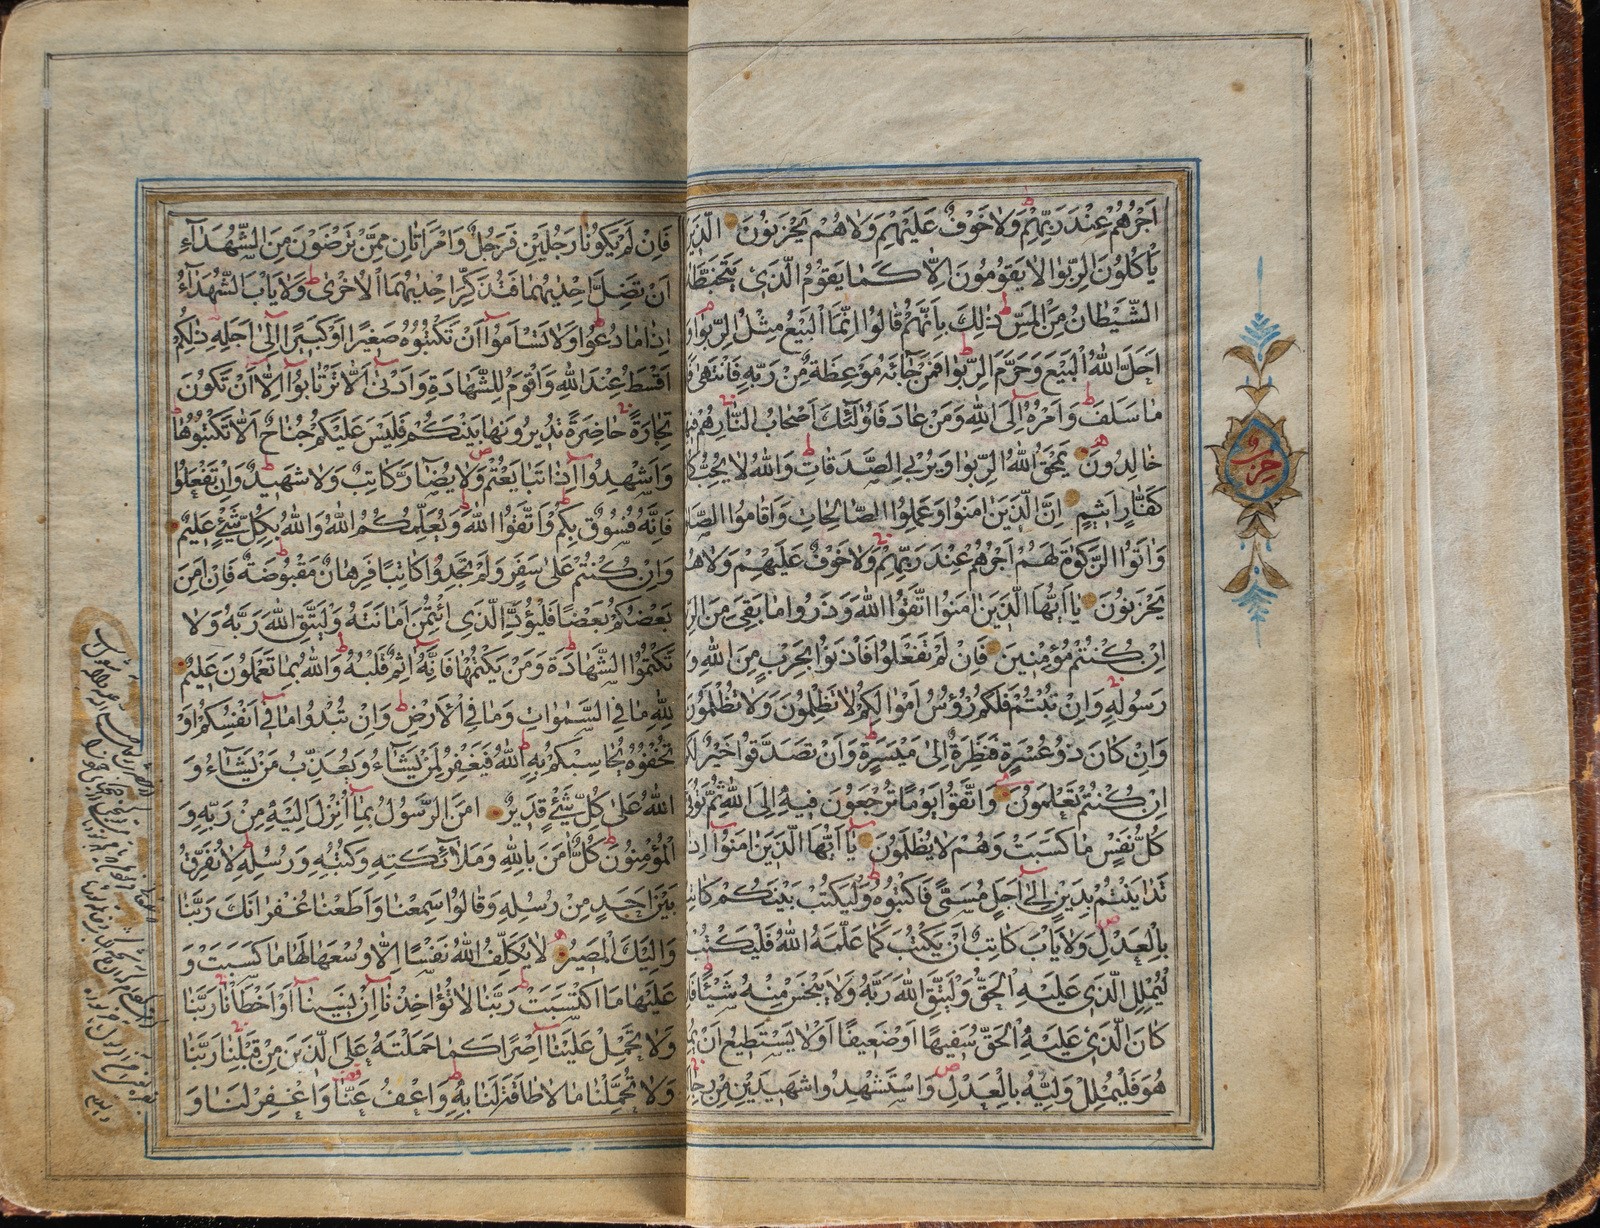 اَجْرُهُمْ عِنْدَ رَبِّهِمْ وَلَا خَوْفٌ عَلَيْهِمْ وَلَا هُمْ يَحْزَنُونَ الَّذِينَ
يَأْكُلُونَ الرِّبٰوا لَا يَقُومُونَ اِلَّا كَمَا يَقُومُ الَّذِي يَتَخَبَّطُهُ
الشَّيْطَانُ مِنَ الْمَسِّ ذٰلِكَ بِاَنَّهُمْ قَالُوا اِنَّمَا الْبَيْعُ مِثْلُ الرِّبٰوا وَ
اَحَلَّ اللّٰهُ الْبَيْعَ وَحَرَّمَ الرِّبٰوا فَمَنْ جَائَهُ مَوْعِظَةٌ مِنْ رَبِّهِ فَانْتَهٰى
مَا سَلَفَ وَاَمْرُهُ اِلَى اللّٰهِ وَمَنْ عَادَ فَاُولٰئِكَ اَصْحَابُ النَّارِ هُمْ فِيهَا
خَالِدُونَ يَمْحَقُ اللّٰهُ الرِّبٰوا وَيُرْبِي الصَّدَقَاتِ وَاللّٰهُ لَا يُحِبُّ
كَفَّارٍ اَثِيمٍ اِنَّ الَّذِينَ اٰمَنُوا وَعَمِلُوا الصَّالِحَاتِ وَاَقَامُوا
وَاٰتَوُا الزَّكٰوةَ لَهُمْ اَجْرُهُمْ عِنْدَ رَبِّهِمْ وَلَا خَوْفٌ عَلَيْهِمْ وَلَا
يَحْزَنُونَ يَا اَيُّهَا الَّذِينَ اٰمَنُوا اتَّقُوا اللّٰهَ وَذَرُوا مَا بَقِيَ مِنَ
اِنْ كُنْتُمْ مُؤْمِنِينَ فَاِنْ لَمْ تَفْعَلُوا فَاْذَنُوا بِحَرْبٍ مِنَ اللّٰهِ وَ
رَسُولِهِ وَاِنْ تُبْتُمْ فَلَكُمْ رُؤُسُ اَمْوَالِكُمْ لَا تَظْلِمُونَ وَلَا تُظْلَمُونَ
وَاِنْ كَانَ ذُو عُسْرَةٍ فَنَظِرَةٌ اِلٰى مَيْسَرَةٍ وَاَنْ تَصَدَّقُوا خَيْرٌ
اِنْ كُنْتُمْ تَعْلَمُونَ وَاتَّقُوا يَوْمًا تُرْجَعُونَ فِيهِ اِلَى اللّٰهِ ثُمَّ
كُلُّ نَفْسٍ مَا كَسَبَتْ وَهُمْ لَا يُظْلَمُونَ يَا اَيُّهَا الَّذِينَ اٰمَنُوا اِذَا
تَدَايَنْتُمْ بِدَيْنٍ اِلٰى اَجَلٍ مُسَمًّى فَاكْتُبُوهُ وَلْيَكْتُبْ بَيْنَكُمْ
بِالْعَدْلِ وَلَا يَأْبَ كَاتِبٌ اَنْ يَكْتُبَ كَمَا عَلَّمَهُ اللّٰهُ فَلْيَكْتُبْ
لْيُمْلِلِ الَّذِي عَلَيْهِ الْحَقُّ وَلْيَتَّقِ اللّٰهَ رَبَّهُ وَلَا يَبْخَسْ مِنْهُ شَيْئًا
كَانَ الَّذِي عَلَيْهِ الْحَقُّ سَفِيهًا اَوْ ضَعِيفًا اَوْ لَا يَسْتَطِيعُ اَنْ
هُوَ فَلْيُمْلِلْ وَلِيُّهُ بِالْعَدْلِ وَاسْتَشْهِدُوا شَهِيدَيْنِ مِنْ
حزب
فَاِنْ لَمْ يَكُونَا رَجُلَيْنِ فَرَجُلٌ وَامْرَاَتَانِ مِمَّنْ تَرْضَوْنَ مِنَ الشُّهَدَآءِ
اَنْ تَضِلَّ اِحْدٰيهُمَا فَتُذَكِّرَ اِحْدٰيهُمَا الْاُخْرٰى وَلَا يَأْبَ الشُّهَدَآءُ
اِذَا مَا دُعُوا وَلَا تَسْاَمُوا اَنْ تَكْتُبُوهُ صَغِيرًا اَوْ كَبِيرًا اِلٰى اَجَلِهِ ذٰلِكُمْ
اَقْسَطُ عِنْدَ اللّٰهِ وَاَقْوَمُ لِلشَّهَادَةِ وَاَدْنٰى اَلَّا تَرْتَابُوا اِلَّا اَنْ تَكُونَ
تِجَارَةً حَاضِرَةً تُدِيرُونَهَا بَيْنَكُمْ فَلَيْسَ عَلَيْكُمْ جُنَاحٌ اَلَّا تَكْتُبُوهَا
وَاَشْهِدُوا اِذَا تَبَايَعْتُمْ وَلَا يُضَآرَّ كَاتِبٌ وَلَا شَهِيدٌ وَاِنْ تَفْعَلُوا
فَاِنَّهُ فُسُوقٌ بِكُمْ وَاتَّقُوا اللّٰهَ وَيُعَلِّمُكُمُ اللّٰهُ وَاللّٰهُ بِكُلِّ شَيْءٍ عَلِيمٌ
وَاِنْ كُنْتُمْ عَلٰى سَفَرٍ وَلَمْ تَجِدُوا كَاتِبًا فَرِهَانٌ مَقْبُوضَةٌ فَاِنْ اَمِنَ
بَعْضُكُمْ بَعْضًا فَلْيُؤَدِّ الَّذِي اؤْتُمِنَ اَمَانَتَهُ وَلْيَتَّقِ اللّٰهَ رَبَّهُ وَلَا
تَكْتُمُوا الشَّهَادَةَ وَمَنْ يَكْتُمْهَا فَاِنَّهُ اٰثِمٌ قَلْبُهُ وَاللّٰهُ بِمَا تَعْمَلُونَ عَلِيمٌ
لِلّٰهِ مَا فِي السَّمٰوَاتِ وَمَا فِي الْاَرْضِ وَاِنْ تُبْدُوا مَا فِي اَنْفُسِكُمْ اَوْ
تُخْفُوهُ يُحَاسِبْكُمْ بِهِ اللّٰهُ فَيَغْفِرُ لِمَنْ يَشَآءُ وَيُعَذِّبُ مَنْ يَشَآءُ وَ
اللّٰهُ عَلٰى كُلِّ شَيْءٍ قَدِيرٌ اٰمَنَ الرَّسُولُ بِمَا اُنْزِلَ اِلَيْهِ مِنْ رَبِّهِ وَ
الْمُؤْمِنُونَ كُلٌّ اٰمَنَ بِاللّٰهِ وَمَلٰئِكَتِهِ وَكُتُبِهِ وَرُسُلِهِ لَا نُفَرِّقُ
بَيْنَ اَحَدٍ مِنْ رُسُلِهِ وَقَالُوا سَمِعْنَا وَاَطَعْنَا غُفْرَانَكَ رَبَّنَا
وَاِلَيْكَ الْمَصِيرُ لَا يُكَلِّفُ اللّٰهُ نَفْسًا اِلَّا وُسْعَهَا لَهَا مَا كَسَبَتْ وَ
عَلَيْهَا مَا اكْتَسَبَتْ رَبَّنَا لَا تُؤَاخِذْنَا اِنْ نَسِينَا اَوْ اَخْطَاْنَا رَبَّنَا
وَلَا تَحْمِلْ عَلَيْنَا اِصْرًا كَمَا حَمَلْتَهُ عَلَى الَّذِينَ مِنْ قَبْلِنَا رَبَّنَا
وَلَا تُحَمِّلْنَا مَا لَا طَاقَةَ لَنَا بِهِ وَاعْفُ عَنَّا وَاغْفِرْ لَنَا وَ